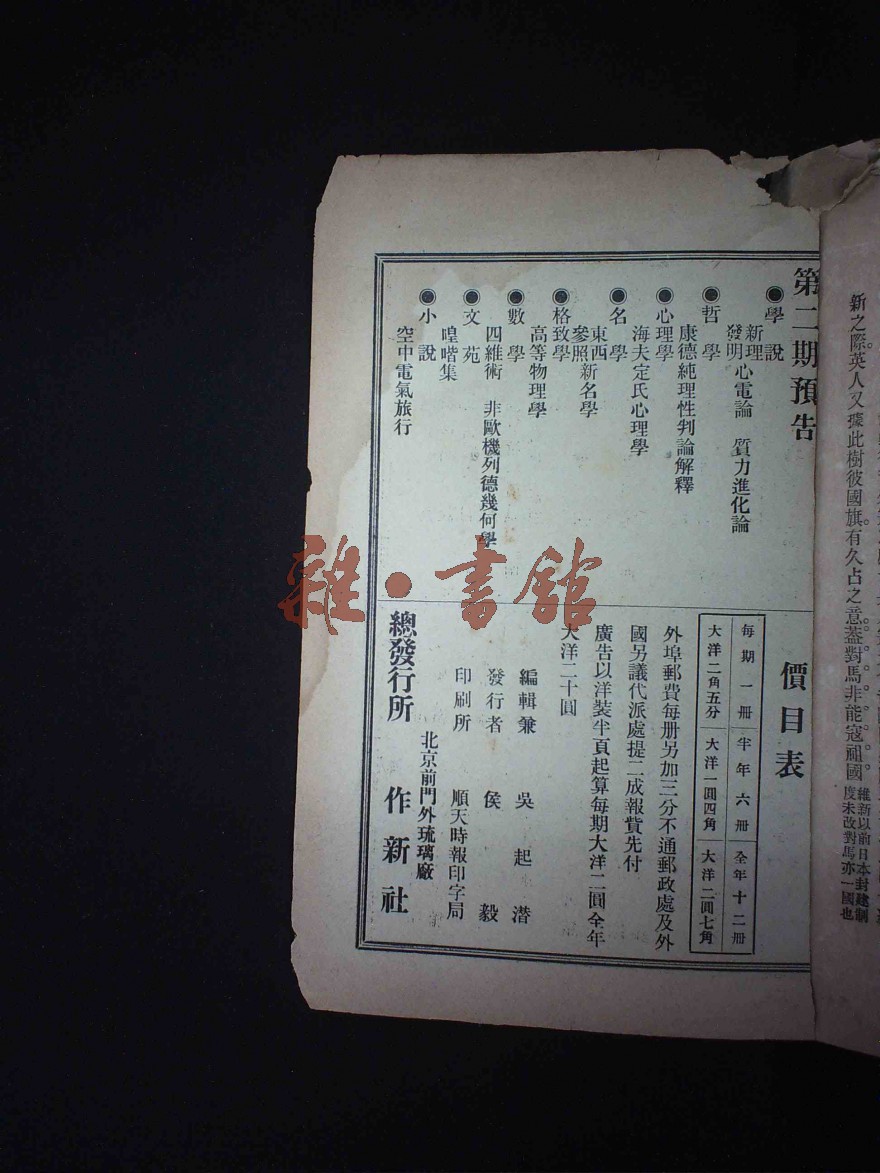 新之際英人又據此樹彼國旗有久占之意蓋對馬非能寇祖國
維新以前日本封建制
度未改對馬亦一國也
第二期預告
◉學說
新理
發明心電論 質力進化論
◉哲學
康德純理性判論解釋
◉心理學
海夫定氏心理學
◉名學
東西
參照新名學
◉格致學
高等物理學
◉數學
四維術 非歐機列德幾何學
◉文苑
喤喈集
◉小說
空中電氣旅行
價目表
每期一冊 半年六冊 全年十二冊
大洋二角五分 大洋一圓四角 大洋二圓七角
外埠郵費每册另加三分不通郵政處及外
國另議代派處提二成報貲先付
廣告以洋裝半頁起算每期大洋二圓全年
大洋二十圓
編輯兼 吳起潛
發行者 侯毅
印刷所 順天時報印字局
北京前門外琉璃廠
總發行所 作新社
雜·書館